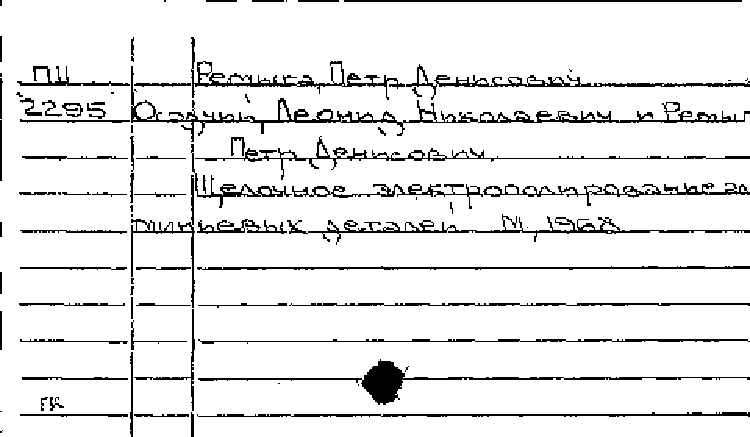 ПЦ Ремыга, Петр Денисович
2295 Осадчий, Леонид Николаевич и Ремыг
Петр Денисович.
Щелочное электрополирование ал
миниевых деталей М, 1968
ГК